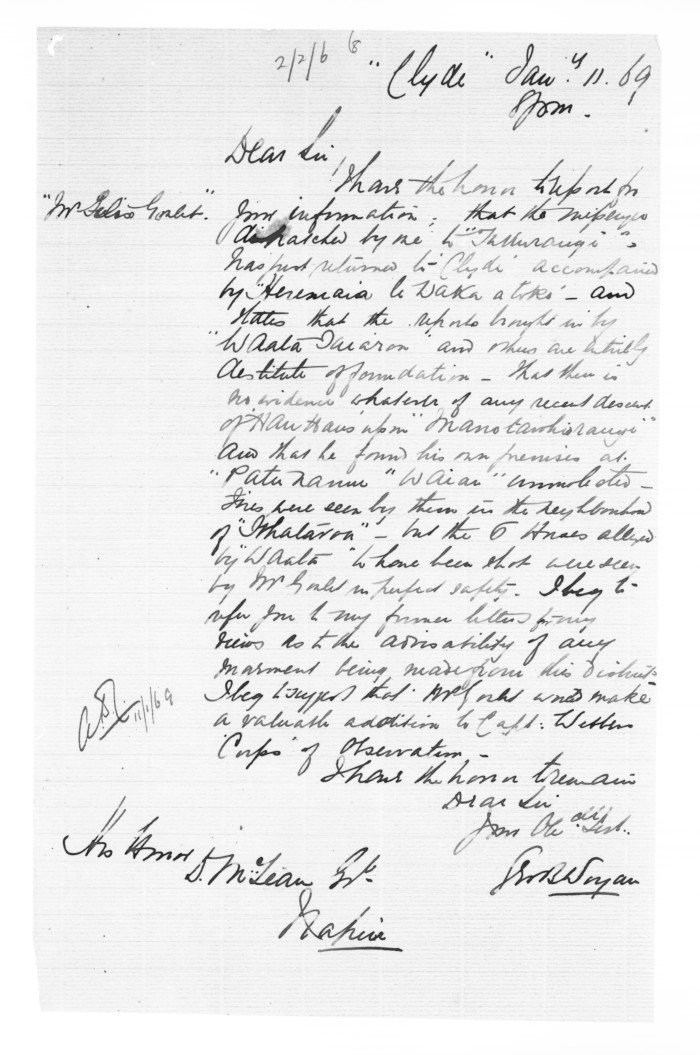 2/2/6 8
"Clyde" Jany. 11. 69
8 pm.
Dear Sir,
I have the honor to report for
"Mr Felix Goulet".
your information, that the messenger
dispatched by me to
has just returned to "Clyde" accompanied
by "Heremaia te Waka a toki" - and
states that the reports brought in by
"Waata Taiaroa" and others are entirely
destitute of foundation - that there is
no evidence whatever of any recent descent
of "Hau Haus" upon
and that he found his own premises at
"Waiau" unmolested -
Fires were seen by them in the neighbourhood
of "Whataroa" - but the 6 Horses alleged
by "Waata" to have been shot were seen
by Mr Goulet in perfect safety. I beg to
refer you to my former letters for my
views as to the advisability of any
movement being made from this District.
I beg to suggest that Mr Goulet would make
a valuable addition to Capt: Westrup's
"Corps" of Observation -
I have the honor to remain
Dear Sir
Your Obedt. Servt.
11/1/69
His Honor
D. McLean Esq.
Napier